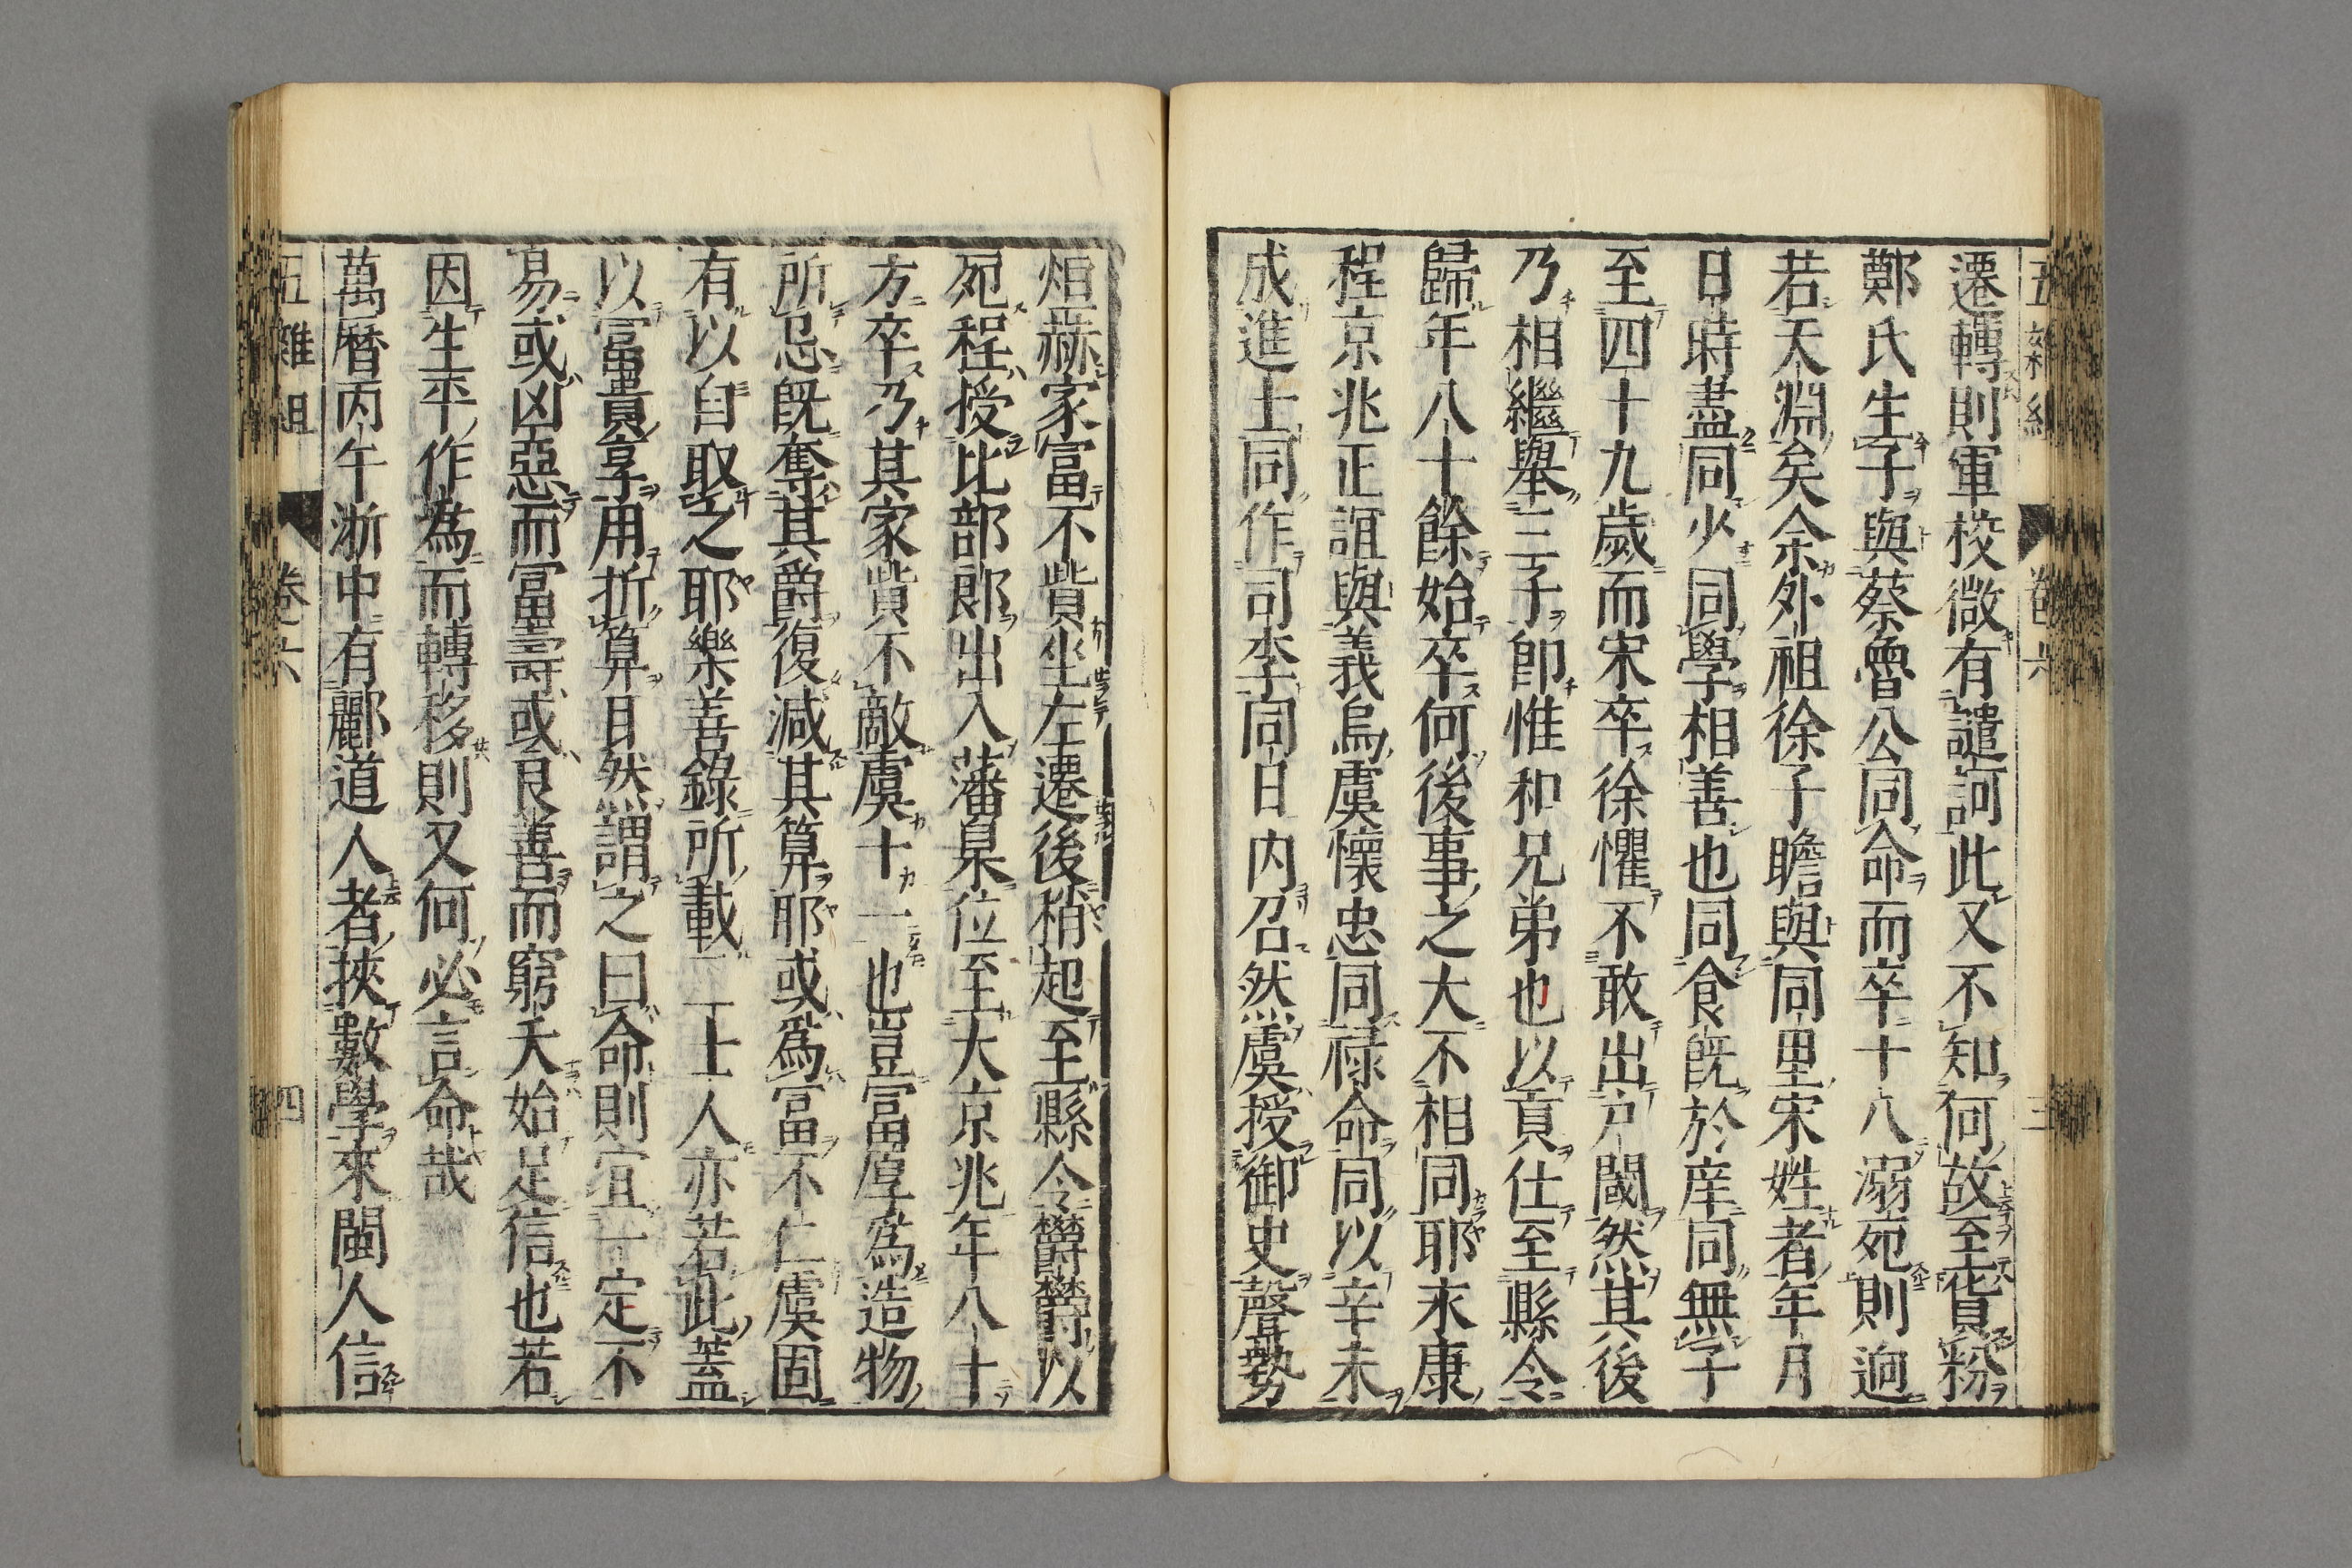 遷轉則軍校微有譴訶此又不知何故至貨粉
鄭氏生子與蔡魯公同命而卒十八溺死則逈
若天淵矣余外祖徐子瞻與同里宋姓者年月
日時盡同少同學相善也同食既於庠同無子
至四十九歲而宋卒徐懼不敢出戶閾然其後
乃相繼舉三子即惟和兄弟也以貢仕至縣令
歸年八十餘始卒何後事之大不相同耶永康
程京兆正誼與義烏虞懷忠同祿命同以辛未
成進士同作司李同日內召然虞授御史聲勢
烜赫家富不貲坐左遷後稍起至縣令欝欝以
死程授比部郎出入藩臬位至大京兆年八十
方卒乃其家貲不敵虞十一也豈富厚為造物
所忌既奪其爵復減其算耶或為富不仁虞固
有以自取之耶樂善錄所載二士人亦若此蓋
以富貴享用折算目然謂之曰命則宜一定不
易或凶惡而富壽或良善而窮夭始足信也若
因生平作為而轉移則又何必言命哉
萬曆丙午浙中有酈道人者挾數學來閩人信
五雜組
卷六
四
卷六
三